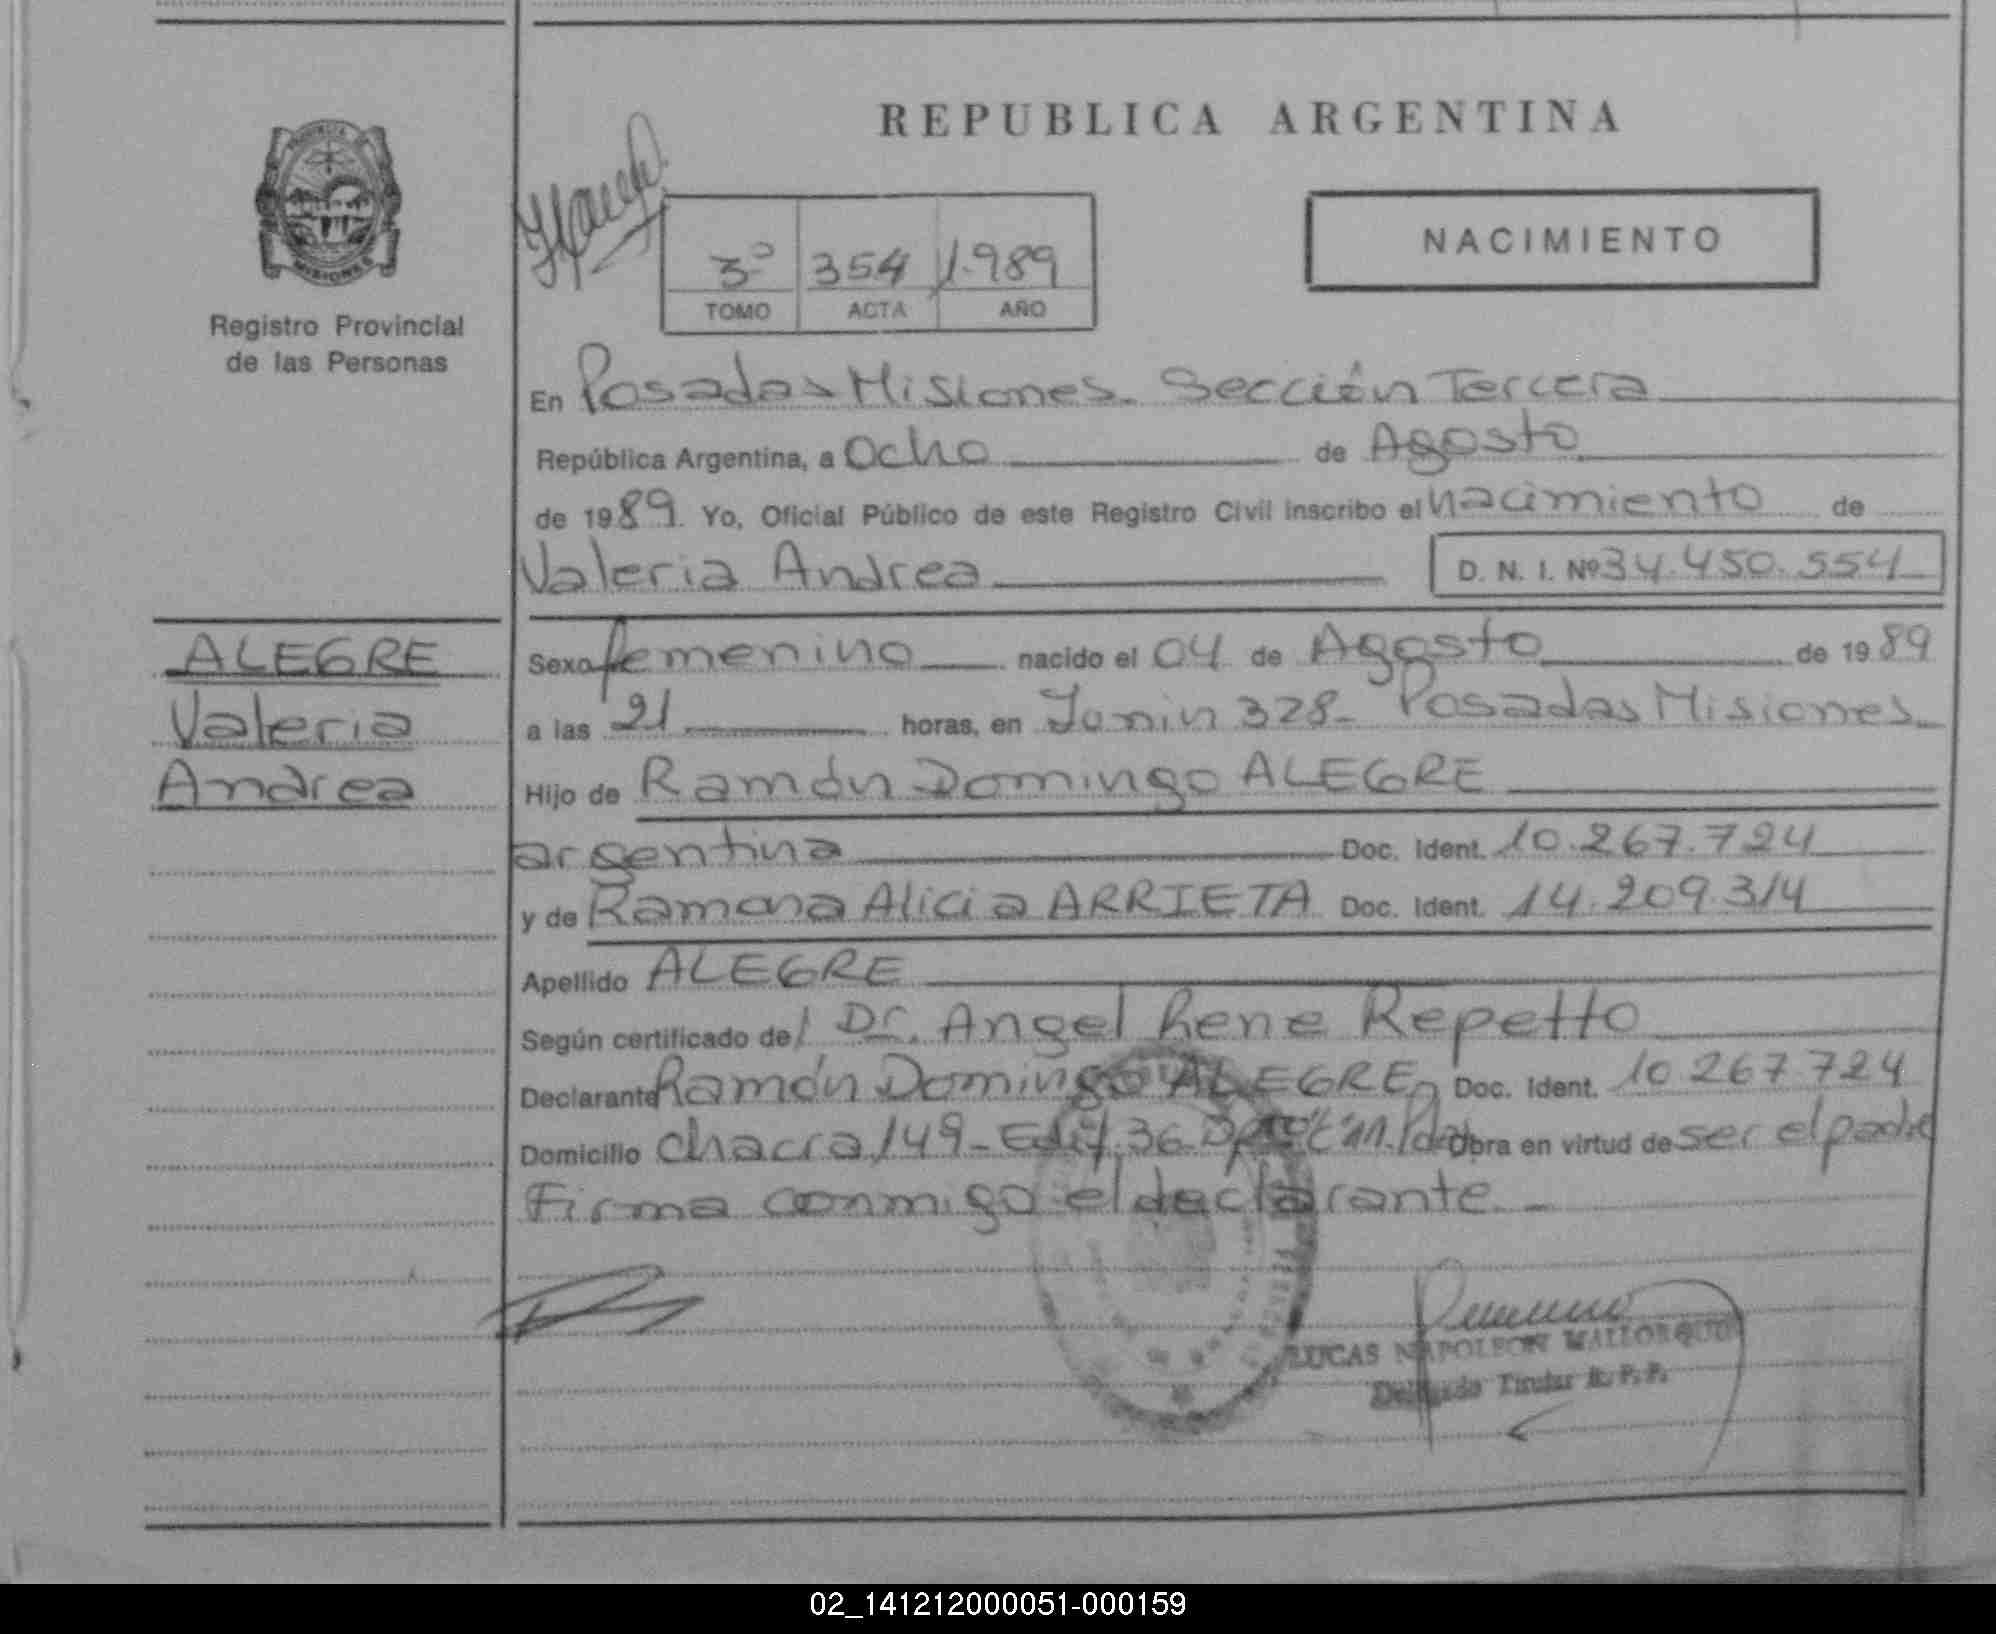 REPUBLICA ARGENTINA
MISIONES
Registro Provincial
de las Personas
3º 354 1.989
TOMO ACTA AÑO
NACIMIENTO
En Posadas Misiones. Sección Tercera
República Argentina, a Ocho de Agosto
de 1989. Yo, Oficial Público de este Registro Civil inscribo el nacimiento de
Valeria Andrea D. N. I. Nº 34.450.554
ALEGRE
Valeria
Andrea
Sexo femenino nacido el 04 de Agosto de 1989
a las 21 horas, en Junin 328- Posadas Misiones
Hijo de Ramón Domingo ALEGRE
argentina Doc. Ident. 10.267.724
y de Ramona Alicia ARRIETA Doc. Ident. 14.209.314
Apellido ALEGRE
Según certificado del Dr. Angel Rene Repetto
Declarante Ramón Domingo ALEGRE Doc. Ident. 10.267.724
Domicilio Chacra 149- Edif. 36 Obra en virtud de ser el padre
Firma conmigo el declarante.-
LUCAS NAPOLEON MALLORQUIN
Delegado Titular R. P. P.
02_141212000051-000159